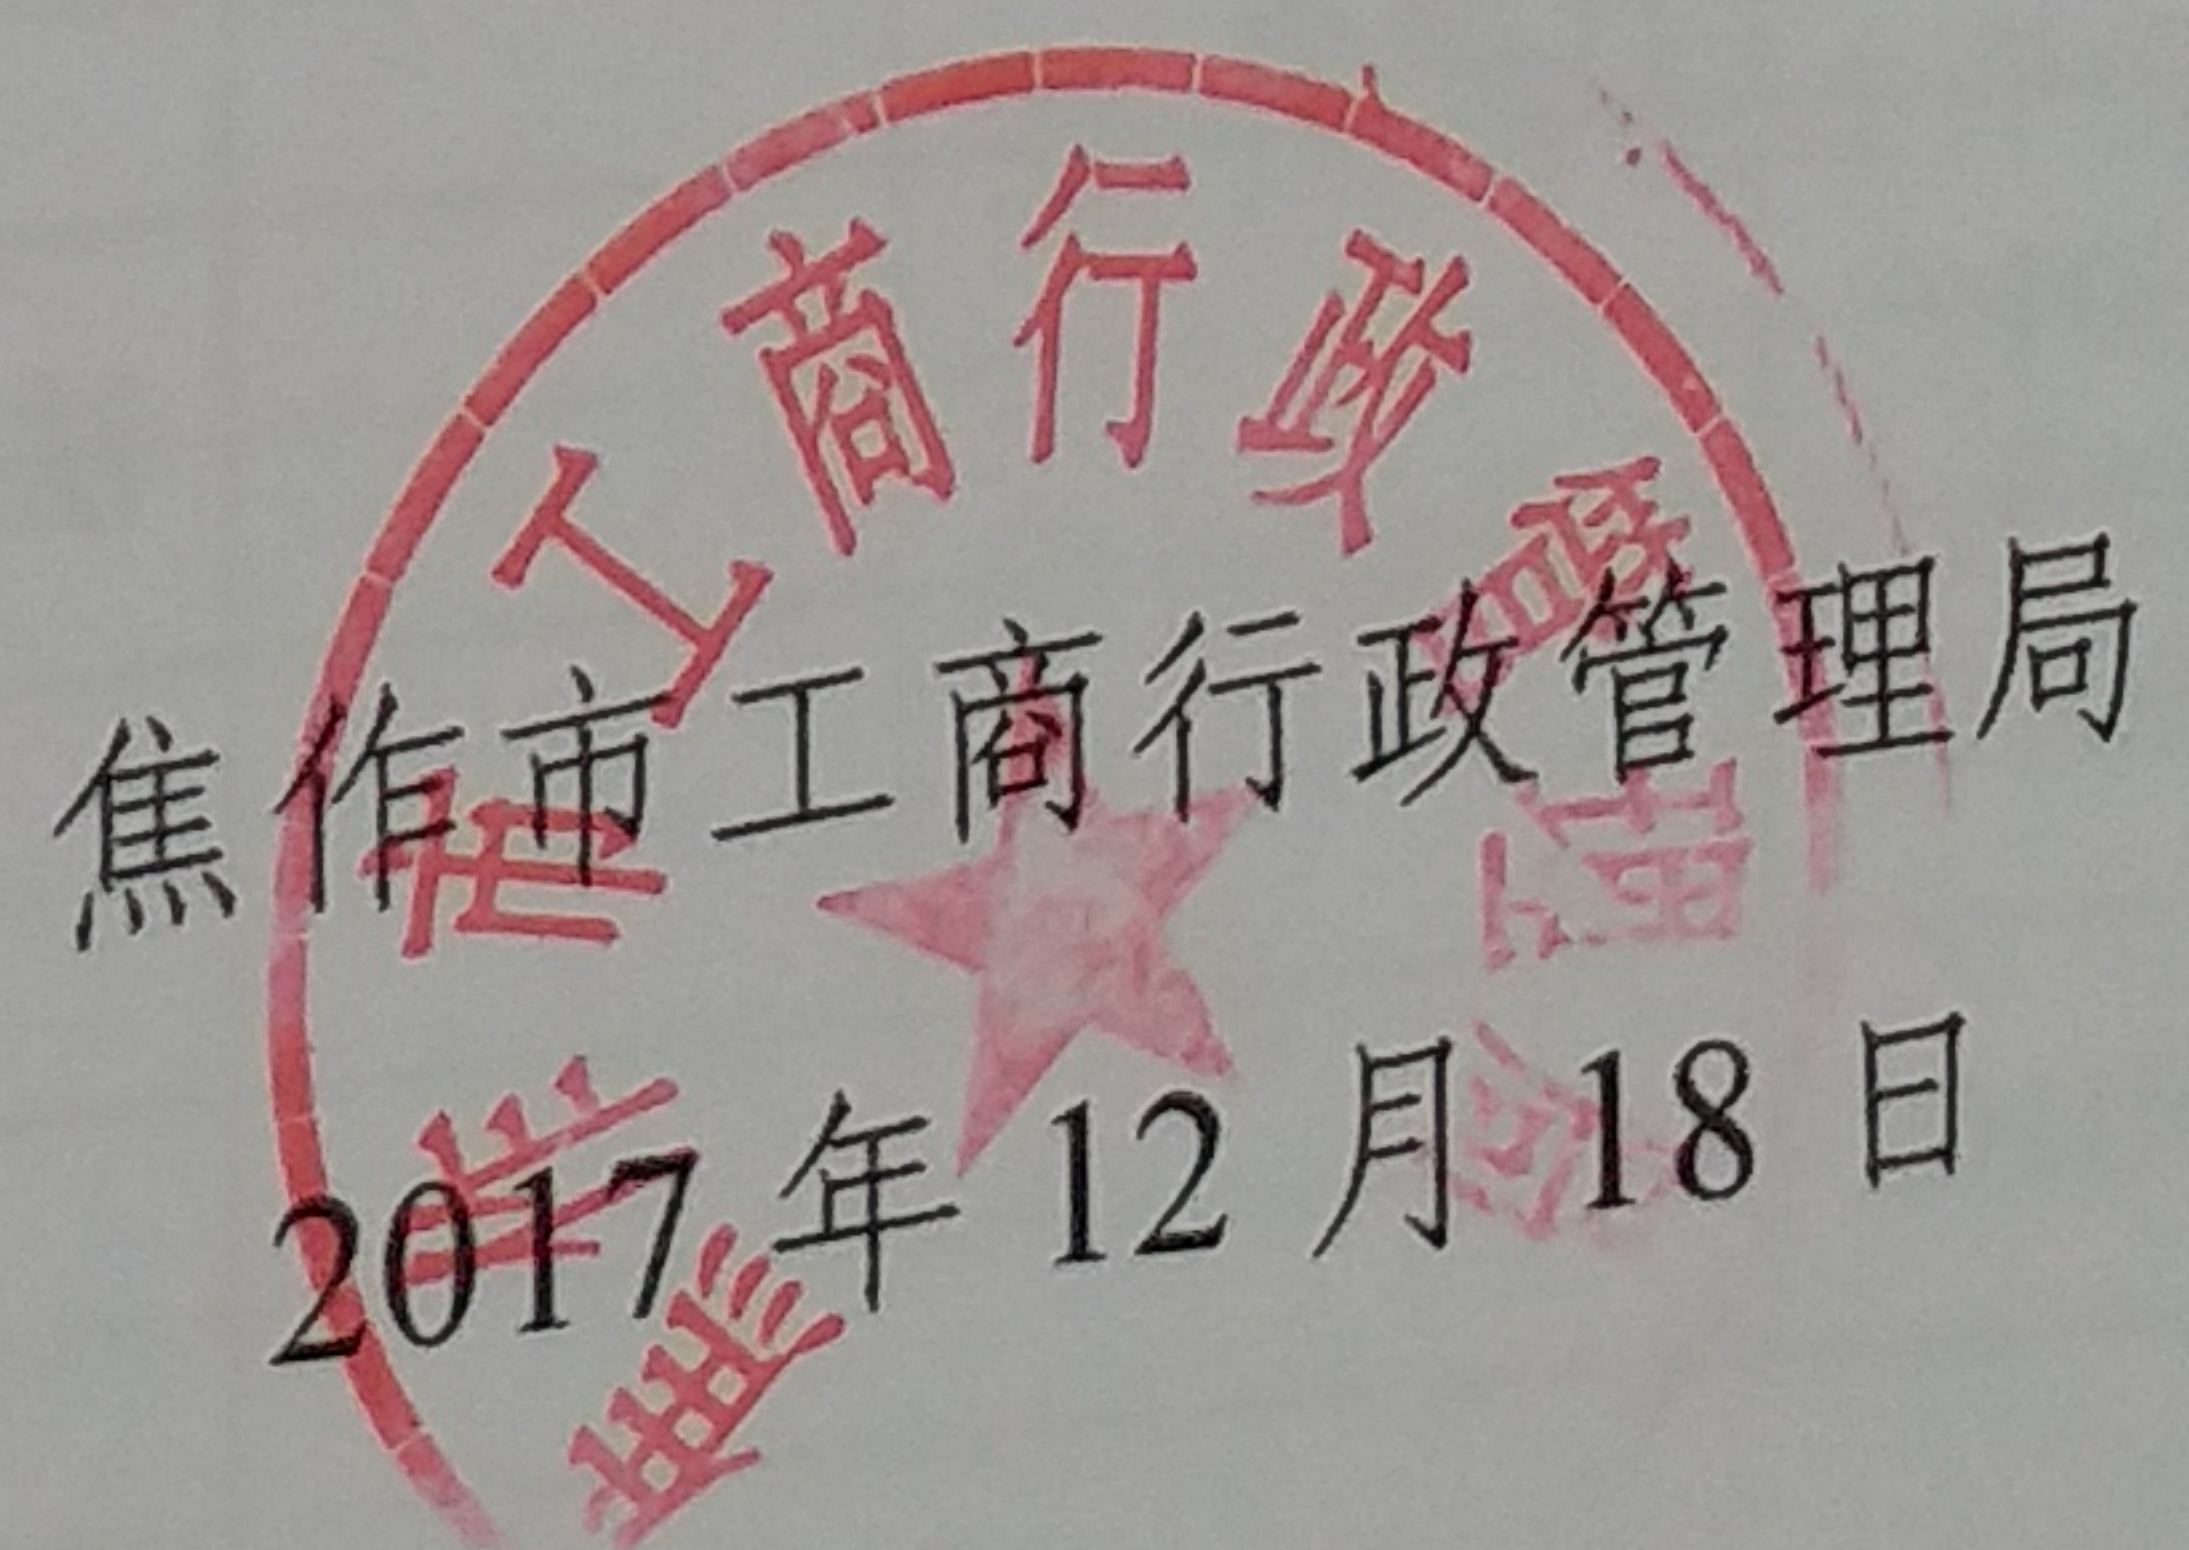 焦作市工商行政管理局
2017年12月18日
焦作市工商行政管理局